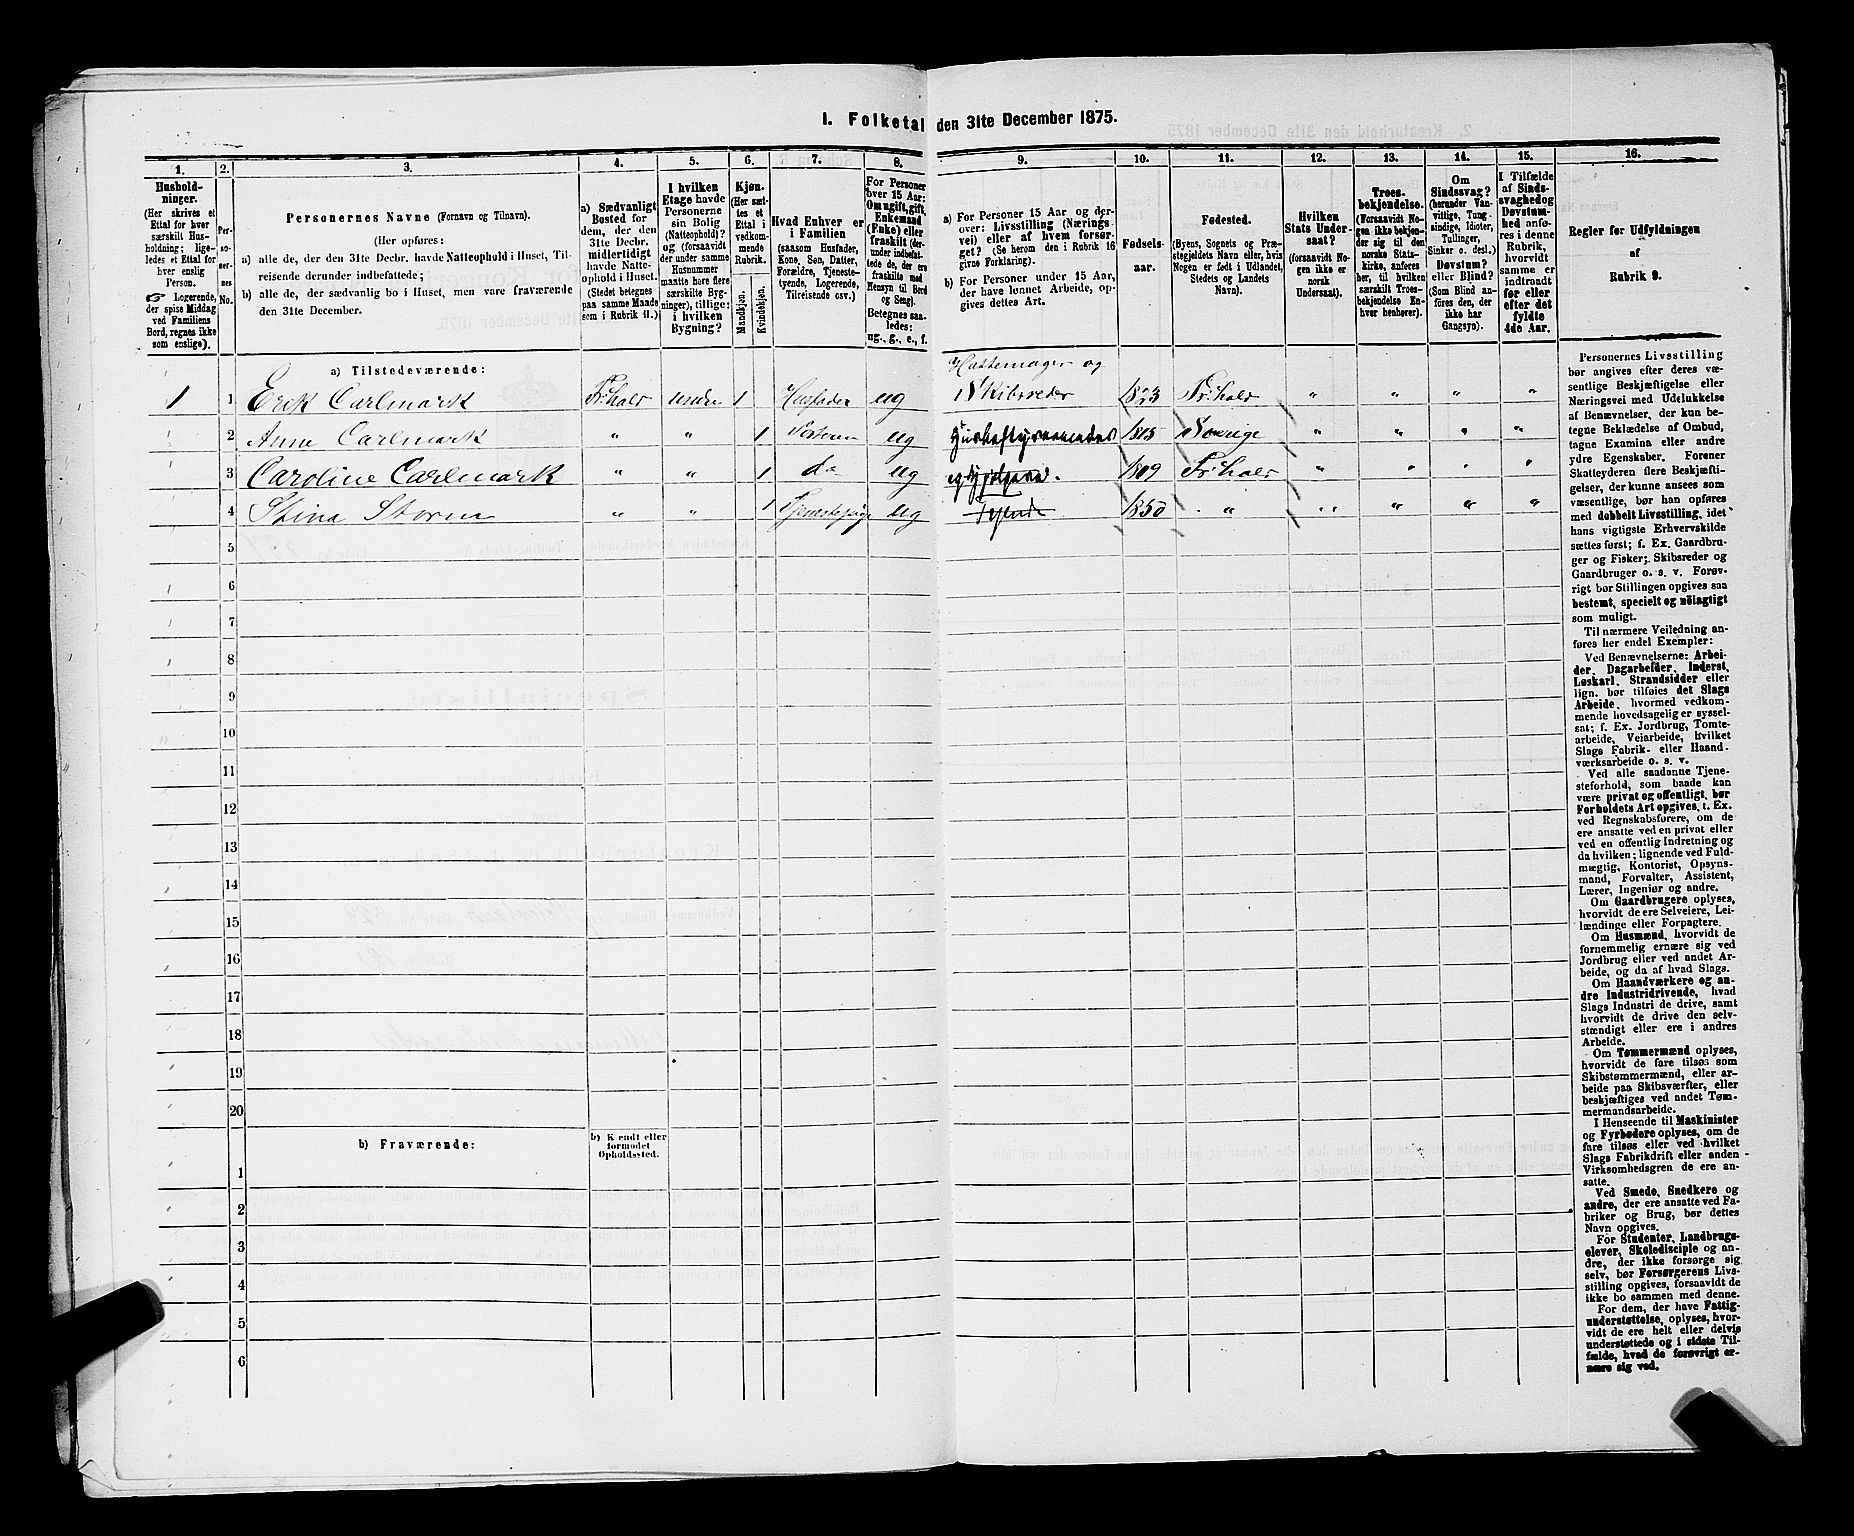 1. Folketal den 31te December 1875.
1. 2. 3. 4. 5. 6. 7. 8. 9. 10. 11. 12. 13. 14. 15. 16.
Hushold-
ninger.
(Her skrives et
Ettal for hver
særskilt Hus-
holdning; lige-
ledes et Ettal for
hver enslig
Person.
☞ Logerende,
der spise Middag
ved Familiens
Bord, regnes ikke
som enslige).
Per-
so-
ner-
nes
No.
Personernes Navne (Fornavn og Tilnavn).
(Her opføres:
a) alle de, der den 31te Decbr. havde Natteophold i Huset, Til-
reisende derunder indbefattede;
b) alle de, der sædvanlig bo i Huset, men vare fraværende
den 31te December.
a) Sædvanligt
Bosted for
dem, der den
31te Decbr.
midlertidigt
havde Natte-
ophold i Huset.
(Stedet betegnes
paa samme Maade
som i Rubrik 11.)
I hvilken
Etage havde
Personerne
sin Bolig
(Natteophold)?
og (forsaavidt
der under samme
Husnummer
maatte høre flere
særskilte Byg-
ninger), tillige:
i hvilken
Bygning?
Kjøn.
(Her sæt-
tes et
Ettal i
vedkom-
mende
Rubrik.
Mandkjøn.
Kvindekjøn.
Hvad Enhver er
i Familien
(saasom Husfader,
Kone, Søn, Datter,
Forældre, Tjeneste-
tyende, Logerende,
Tilreisende osv.)
For Personer
over 15 Aar:
Om ugift, gift,
Enkemand
(Enke) eller
fraskilt (der-
under indbefat-
tede de, der ere
fraskilte med
Hensyn til Bord
og Seng).
Betegnes saa-
ledes:
ug., g., e., f.
a) For Personer 15 Aar og der-
over: Livsstilling (Nærings-
vei) eller af hvem forsør-
get? (Se herom den i Rubrik 16
givne Forklaring).
b) For Personer under 15 Aar,
der have lønnet Arbeide, op-
gives dettes Art.
Fødsels-
aar.
Fødested.
(Byens, Sognets og Præ-
stegjeldets Navn eller, hvis
Nogen er født i Udlandet,
Stedets og Landets
Navn).
Hvilken
Stats Under-
saat?
(forsaavidt No-
gen ikke er
norsk
Undersaat).
Troes-
bekjendelse.
(Forsaavidt No-
gen ikke bekjen-
der sig til den
norske Stats-
kirke, anføres
her, til hvilken
særskilt Troes-
bekjendelse En-
hver henhører).
Om
Sindssvag?
(herunder Van-
vittige, Tung-
sindige, Idioter,
Tullinger,
Sinker o. desl.)
Døvstum?
eller Blind?
(Som Blind an-
føres den, der
ikke har
Gangsyn).
I Tilfælde
af Sinds-
svaghed og
Døvstum-
hed anfø-
res i denne
Rubrik,
hvorvidt
samme er
indtraadt
før eller
efter det
fyldte
4de Aar.
Regler for Udfyldningen
af
Rubrik 9.
a) Tilstedeværende:
Hattemager og
1 1 Erik Carlmark Fr:hald Undre 1 Husfader ug Skibsreder 1823 Fr:hald " " " "
2 Anne Carlmark " " 1 Søsteren ug 1815 Sverige " " " "
3 Caroline Carlmark " " 1 do ug 1809 Fr:hald " " " "
4 Stina Storm " " 1 Tjenestepige ug 1850 " " " " "
5
6
7
8
9
10
11
12
13
14
15
16
17
18
19
20
b) Fraværende:
b) Kjendt eller
formodet
Opholdssted.
1
2
3
4
5
6
Personernes Livsstilling
bør angives efter deres væ-
sentlige Beskjæftigelse eller
Næringsvei med Udelukkelse
af Benævnelser, der kun be-
tegne Beklædelse af Ombud,
tagne Examina eller andre
ydre Egenskaber. Forener
Skatteyderen flere Beskjæfti-
gelser, der kunne ansees som
væsentlige, bør han opføres
med dobbelt Livsstilling, idet
hans vigtigste Erhvervskilde
sættes først; f. Ex. Gaardbru-
ger og Fisker; Skibsreder og
Gaardbruger o. s. v. Forøv-
rigt bør Stillingen opgives saa
bestemt, specielt og nøiagtigt
som muligt.
Til nærmere Veiledning an-
føres her endel Exempler:
Ved Benævnelserne: Arbei-
der, Dagarbeider, Inderst,
Løskarl, Strandsidder eller
lign. bør tilføies det Slags
Arbeide, hvormed vedkom-
mende hovedsagelig er syssel-
sat; f. Ex. Jordbrug, Tomte-
arbeide, Veiarbeide, hvilket
Slags Fabrik- eller Haand-
værksarbeide o. s. v.
Ved alle saadanne Tjene-
steforhold, som baade kan
være privat og offentligt, bør
Forholdets Art opgives, t. Ex.
ved Regnskabsførere, om de
ere ansatte ved en privat eller
ved en offentlig Indretning og
da hvilken; lignende ved Fuld-
mægtig, Kontorist, Opsyns-
mand, Forvalter, Assistent,
Lærer, Ingeniør og andre.
Om Gaardbrugere oplyses,
hvorvidt de ere Selveiere, Lei-
lændinge eller Forpagtere.
Om Husmænd, hvorvidt de
fornemmelig ernære sig ved
Jordbrug eller ved andet Ar-
beide, og da af hvad Slags.
Om Haandværkere og an-
dre Industridrivende, hvad
Slags Industri de drive, samt
hvorvidt de drive den selv-
stændigt eller ere i andres
Arbeide.
Om Tømmermænd oplyses,
hvorvidt de fare tilsøs som
Skibstømmermænd, eller ar-
beide paa Skibsværfter, eller
beskjæftiges ved andet Tøm-
mermandsarbeide.
I Henseende til Maskinister
og Fyrbødere oplyses, om de
fare tilsøs eller ved hvilket
Slags Fabrikdrift eller anden
Virksomhedsgren de ere an-
satte.
Ved Smede, Snedkere og
andre, der ere ansatte ved Fa-
briker og Brug, bør dettes
Navn opgives.
For Studenter, Landbrugs-
elever, Skoledisciple og an-
dre, der ikke forsørge sig
selv, bør Forsørgerens Livs-
stilling opgives, forsaavidt de
ikke bo sammen med denne.
For dem, der have Fattig-
understøttelse, oplyses, hvor-
vidt de ere helt eller delvis
understøttede og i sidste Til-
fælde, hvad de forøvrigt er-
nære sig ved.